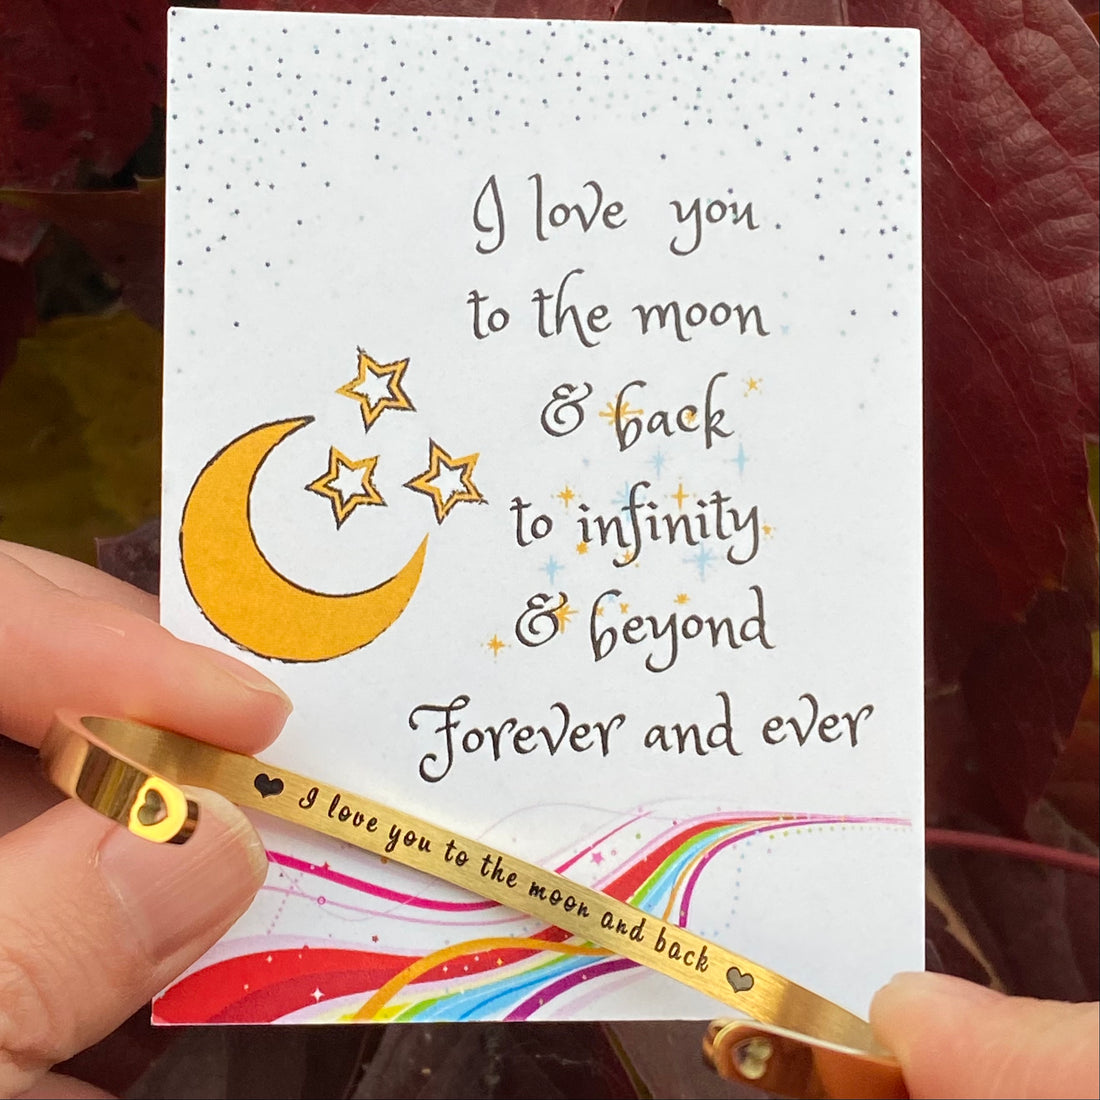 I love you
to the moon
& back
to infinity
& beyond
Forever and ever
I love you to the moon and back